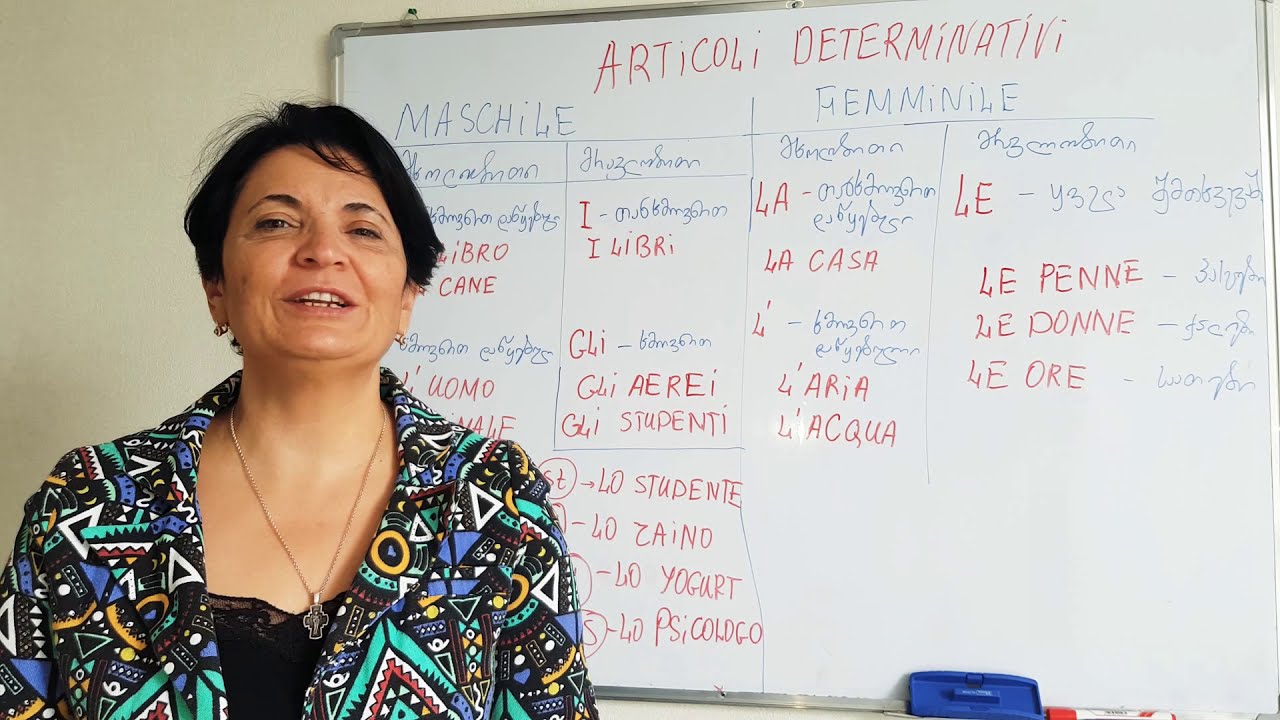 ARTICOLI DETERMINATIVI
MASCHILE
FEMMINILE
მხოლობითი
მრავლობითი
მხოლობითი
მრავლობითი
თანხმოვნით დაწყებულ
LIBRO
CANE
ხმოვნით დაწყებულ
L'UOMO
I - თანხმოვნით
I LIBRI
GLI - ხმოვნით
GLI AEREI
GLI STUDENTI
st → LO STUDENTE
- LO ZAINO
- LO YOGURT
S - LO PSICOLOGO
LA - თანხმოვნით
დაწყებული
LA CASA
L' - ხმოვნით
დაწყებული
L'ARIA
L'ACQUA
LE - ყველა შემთხვევაში
LE PENNE - პასტები
LE DONNE - ქალები
LE ORE - საათები